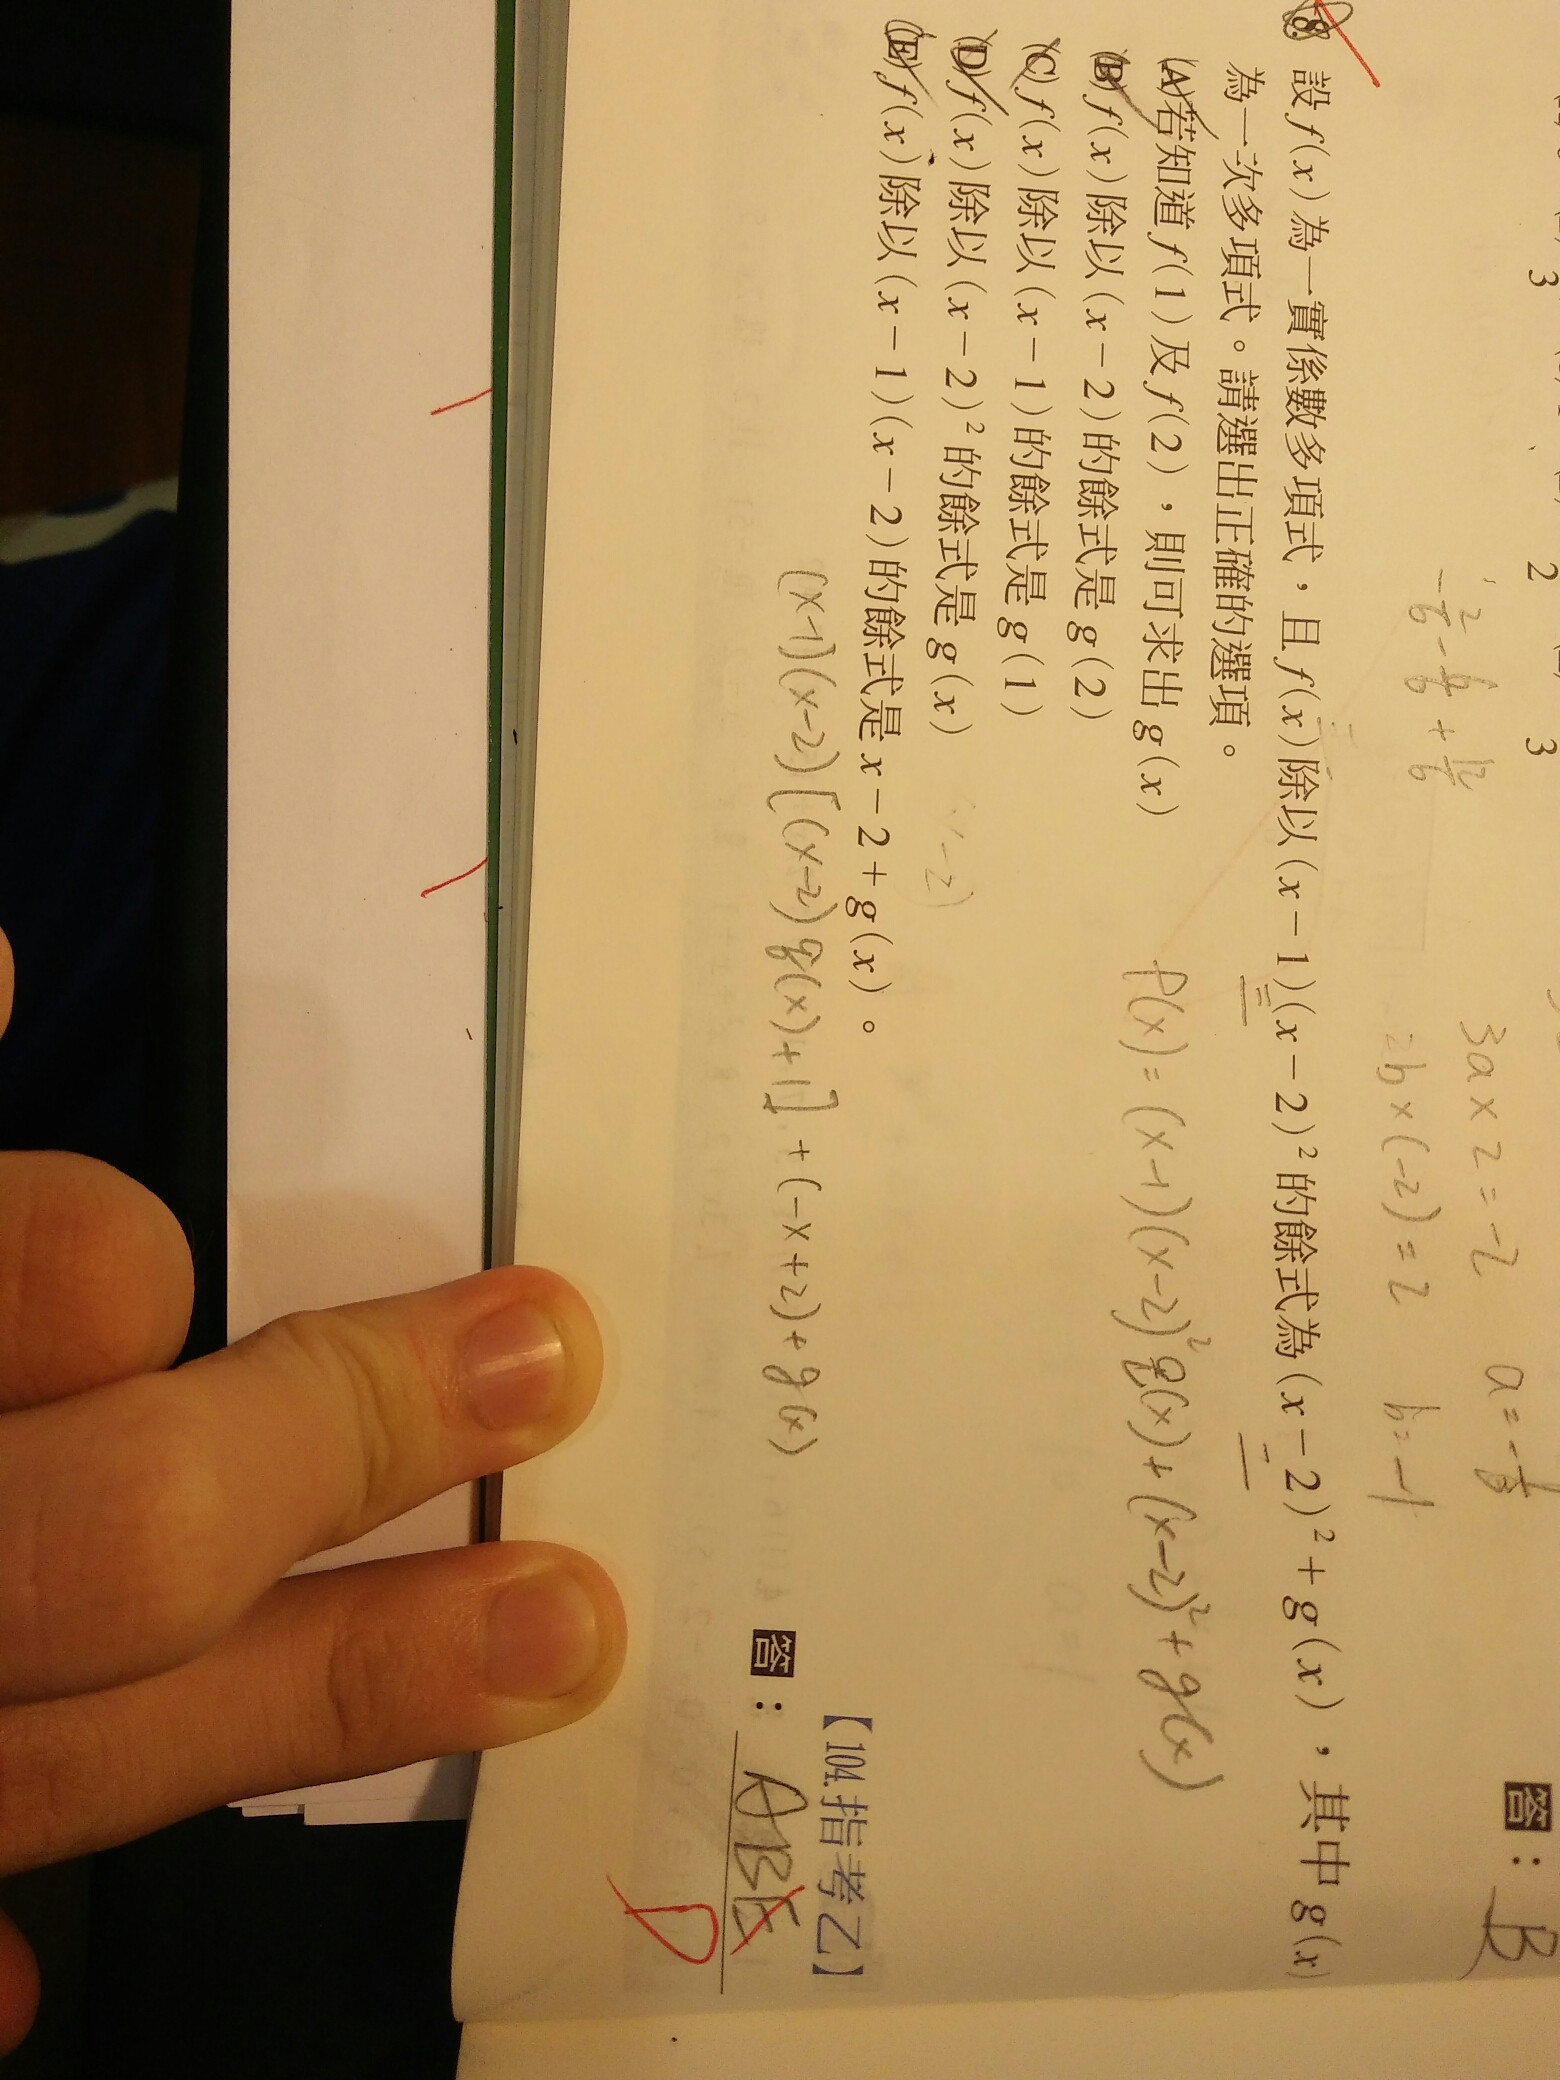 3 2 3
3a×2=-2 a=-
=b×(-2)=2 b=-1
答： B
8. 設f(x)為一實係數多項式，且f(x)除以(x-1)(x-2)²的餘式為(x-2)²+g(x)，其中g(x)
為一次多項式。請選出正確的選項。
(A)若知道f(1)及f(2)，則可求出g(x)
(B)f(x)除以(x-2)的餘式是g(2)
(C)f(x)除以(x-1)的餘式是g(1)
(D)f(x)除以(x-2)²的餘式是g(x)
(E)f(x)除以(x-1)(x-2)的餘式是x-2+g(x)。
f(x)=(x-1)(x-2)²q(x)+(x-2)²+g(x)
(x-1)(x-2)[(x-2)q(x)+1]+(-x+2)+g(x)
【104.指考乙】
答： ABE
D